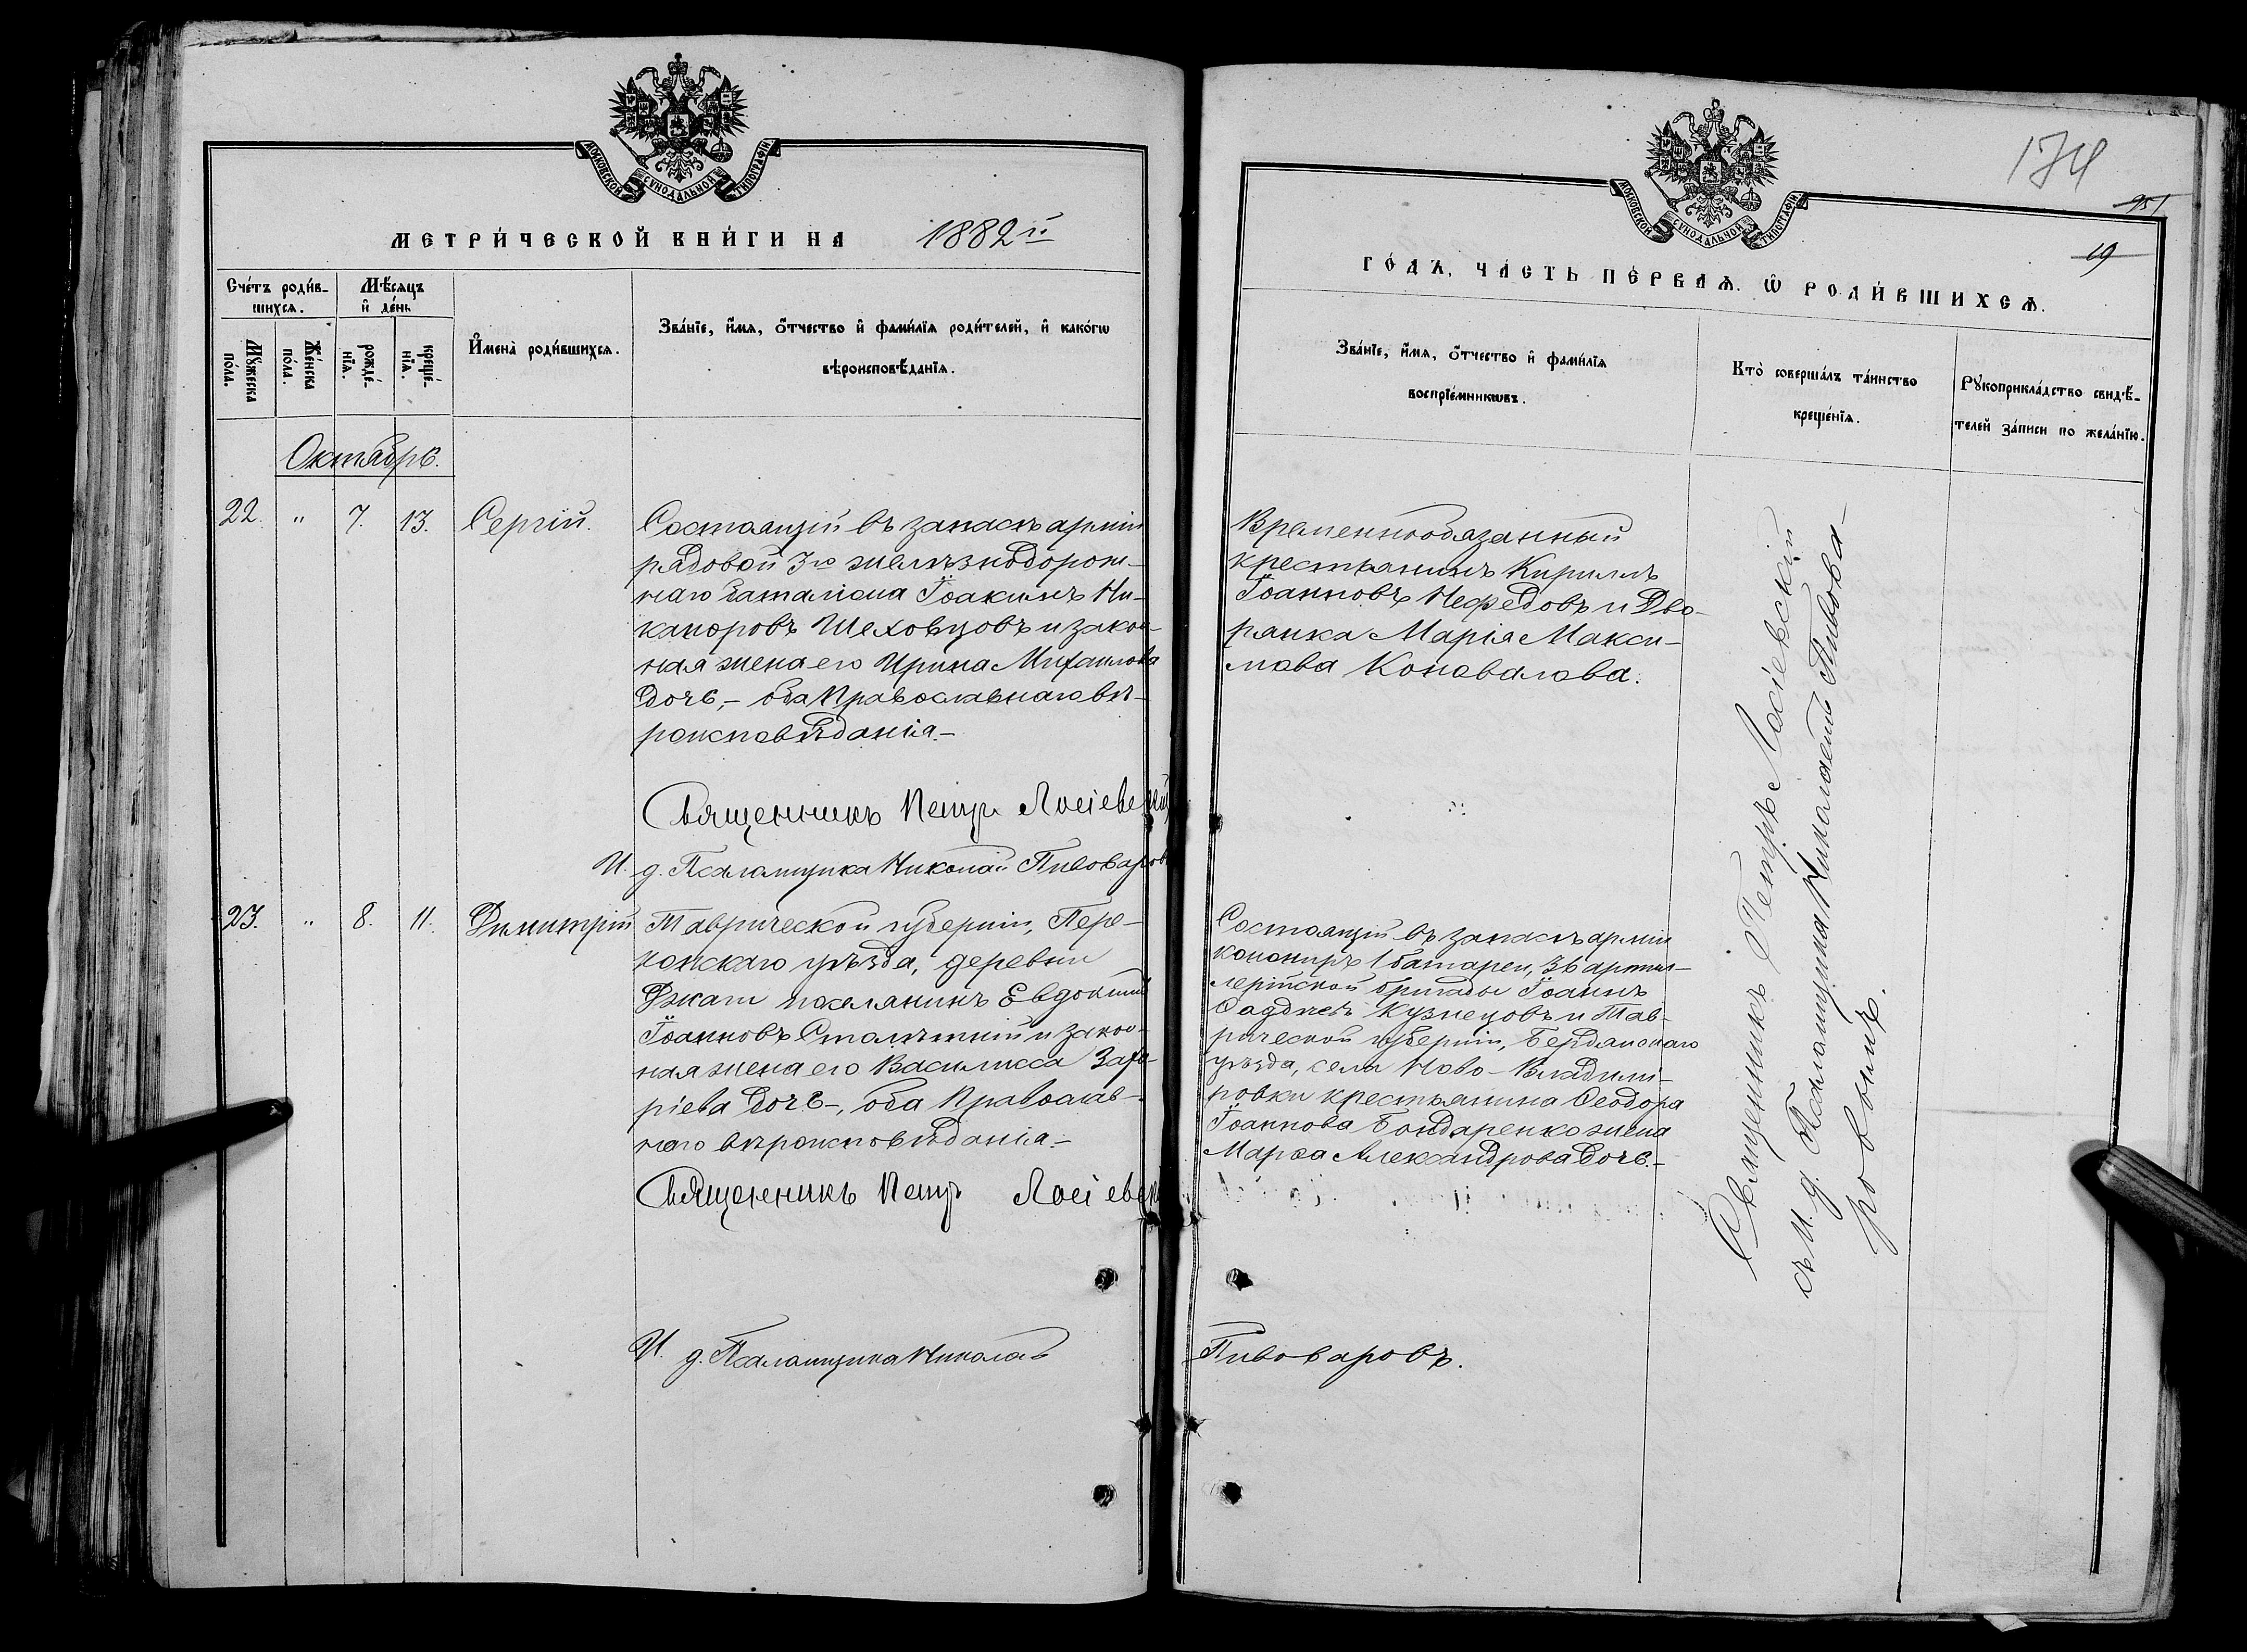 МОСКОВСКОЙ СУНОДАЛЬНОЙ ТИПОГРАФІИ
МЕТРИ́ЧЕСКОЙ КНИ́ГИ НА 1882й
Сче́тъ роди́в-
шихсѧ.
Мѣ́сѧцъ
и҆ де́нь
Мꙋ́жеска
по́ла.
Же́нска
по́ла.
рожде́-
нїѧ.
креще́-
нїѧ.
И҆мена̀ роди́вшихсѧ.
Зва́нїе, и҆́мѧ, ѻ҆́тчество и҆ фами́лїѧ роди́телей, и҆ како́гѡ
вѣроисповѣ́данїѧ.
Октябрь.
22. " 7. 13. Сергій.
Состоящій въ запасѣ арміи
рядовой 3го желѣзнодорож-
наго баталіона Іоакимъ Ни-
каноровъ Шеховцовъ и закон-
ная жена его Ирина Михаилова
дочь,- оба Православнаго вѣ-
роисповѣданія.-
Священникъ Петръ Лосіевскій
И. д. Псаломщика Николай Пивоваровъ
23. " 8. 11. Димитрій
Таврической губерніи, Пере-
копскаго уѣзда, деревни
поселянинъ Евдокимъ
Іоанновъ Столѣтній и закон-
ная жена его Василисса Заха-
ріева дочь-, оба Православ-
наго вѣроисповѣданія.-
Священникъ Петръ Лосіевскій
И. д. Псаломщика Николай Пивоваровъ.
МОСКОВСКОЙ СУНОДАЛЬНОЙ ТИПОГРАФІИ
174
19
ГО́ДЪ, ЧА́СТЬ ПЕ́РВАѦ. Ѡ҆ РОДИ́ВШИХСѦ.
Зва́нїе, и҆́мѧ, ѻ҆́тчество и҆ фами́лїѧ
воспрїе́мникѡвъ.
Кто̀ соверша́лъ та́инство
креще́нїѧ.
Рꙋкоприкла́дство свидѣ́-
телей за́писи по жела́нїю.
Временнообязанный
крестьянинъ Кириллъ
Іоанновъ Нефедовъ и Дво-
рянка Марія Макси-
мова Коновалова.
Состоящій въ запасѣ арміи
канониръ 1 батареи, 36 артил-
лерійской бригады Іоаннъ
Кузнецовъ и Тав-
рической губерніи, Бердянскаго
уѣзда, села Ново-Владимі-
ровки крестьянина Ѳеодора
Іоаннова Бондаренко жена
Марѳа Александрова дочь.-
Священникъ Петръ Лосіевскій
съ И. д. Псаломщика Николаемъ Пивова-
ровымъ.